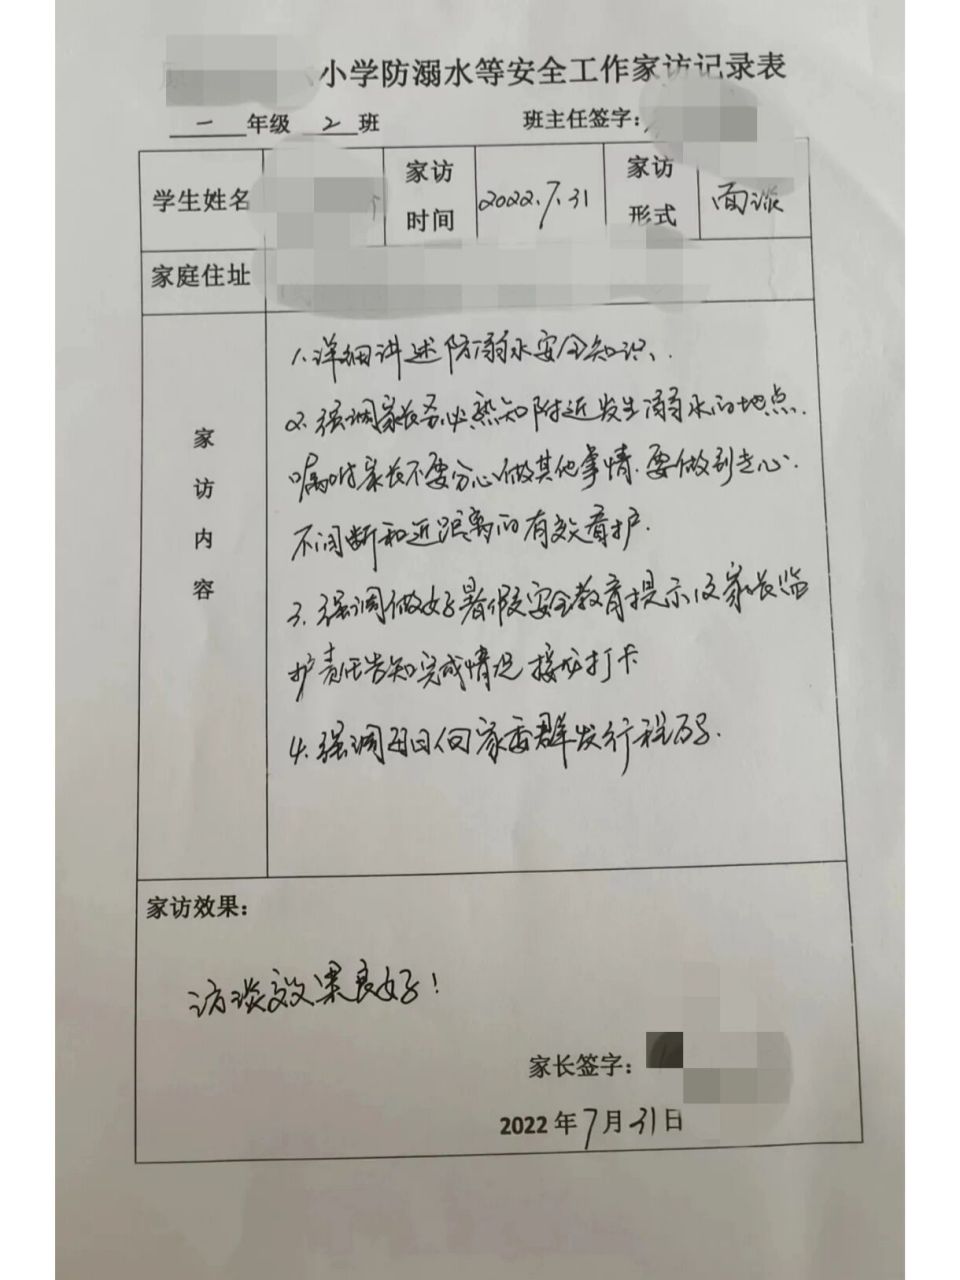 小学防溺水等安全工作家访记录表
一年级 2班 班主任签字：
学生姓名 家访时间 2022.7.31 家访形式 面谈
家庭住址
家访内容
1.详细讲述防溺水安全知识、
2.强调家长务必熟知附近发生溺水的地点.
嘱咐家长不要分心做其他事情.要做到走心.
不间断和近距离的有效看护.
3.强调做好暑假安全教育提示及家长监
护责任告知完成情况接龙打卡
4.强调每日向家委群发行程码.
家访效果：
访谈效果良好！
家长签字：
2022年7月31日